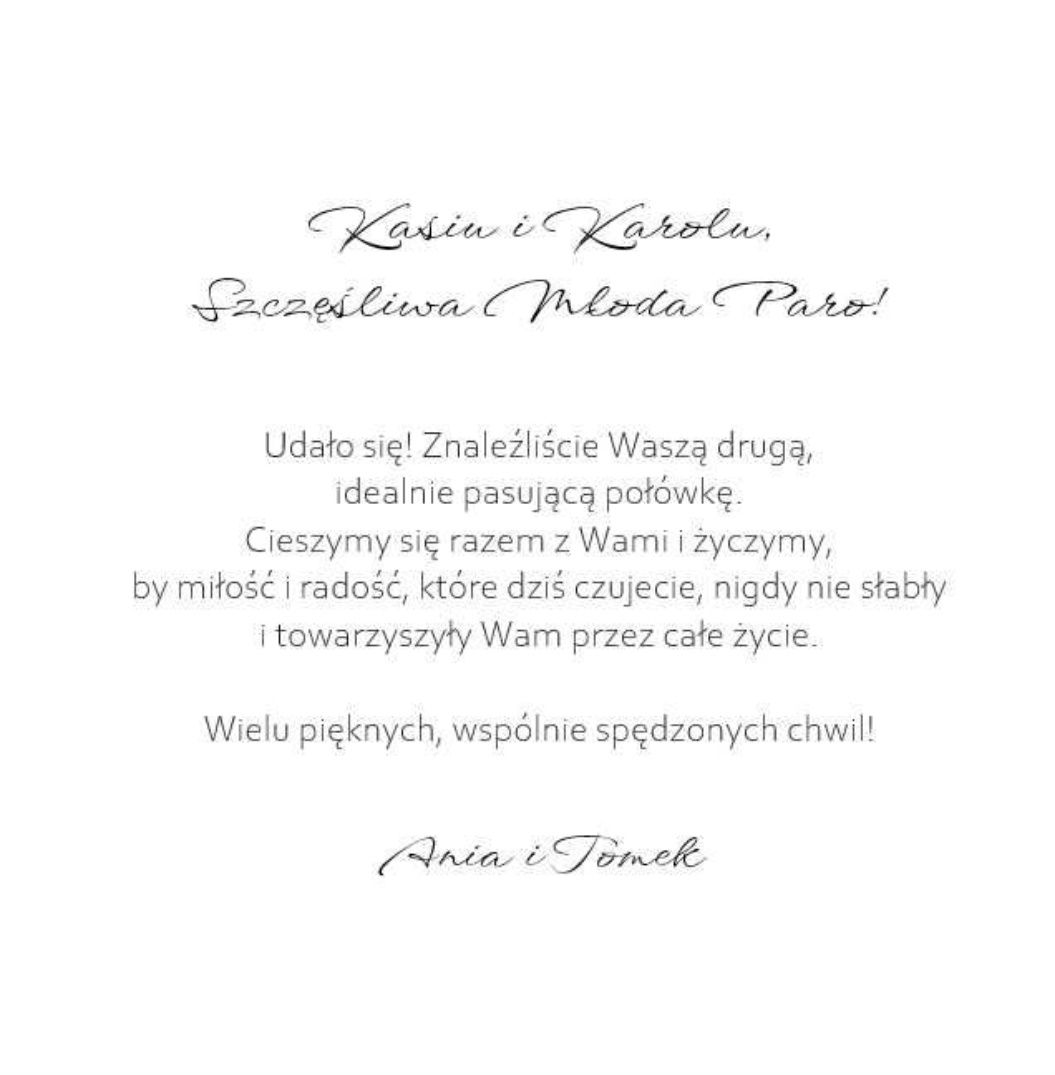 Kasiu i Karolu,
Szczęśliwa Młoda Paro!
Udało się! Znaleźliście Waszą drugą,
idealnie pasującą połówkę.
Cieszymy się razem z Wami i życzymy,
by miłość i radość, które dziś czujecie, nigdy nie słabły
i towarzyszyły Wam przez całe życie.
Wielu pięknych, wspólnie spędzonych chwil!
Ania i Tomek